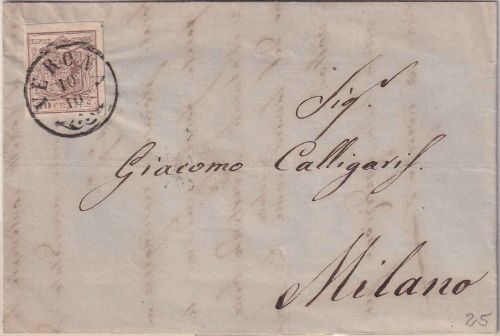 VERONA
10
10
30 CENTES.
Sigr.
Giacomo Calligaris.
Milano
25